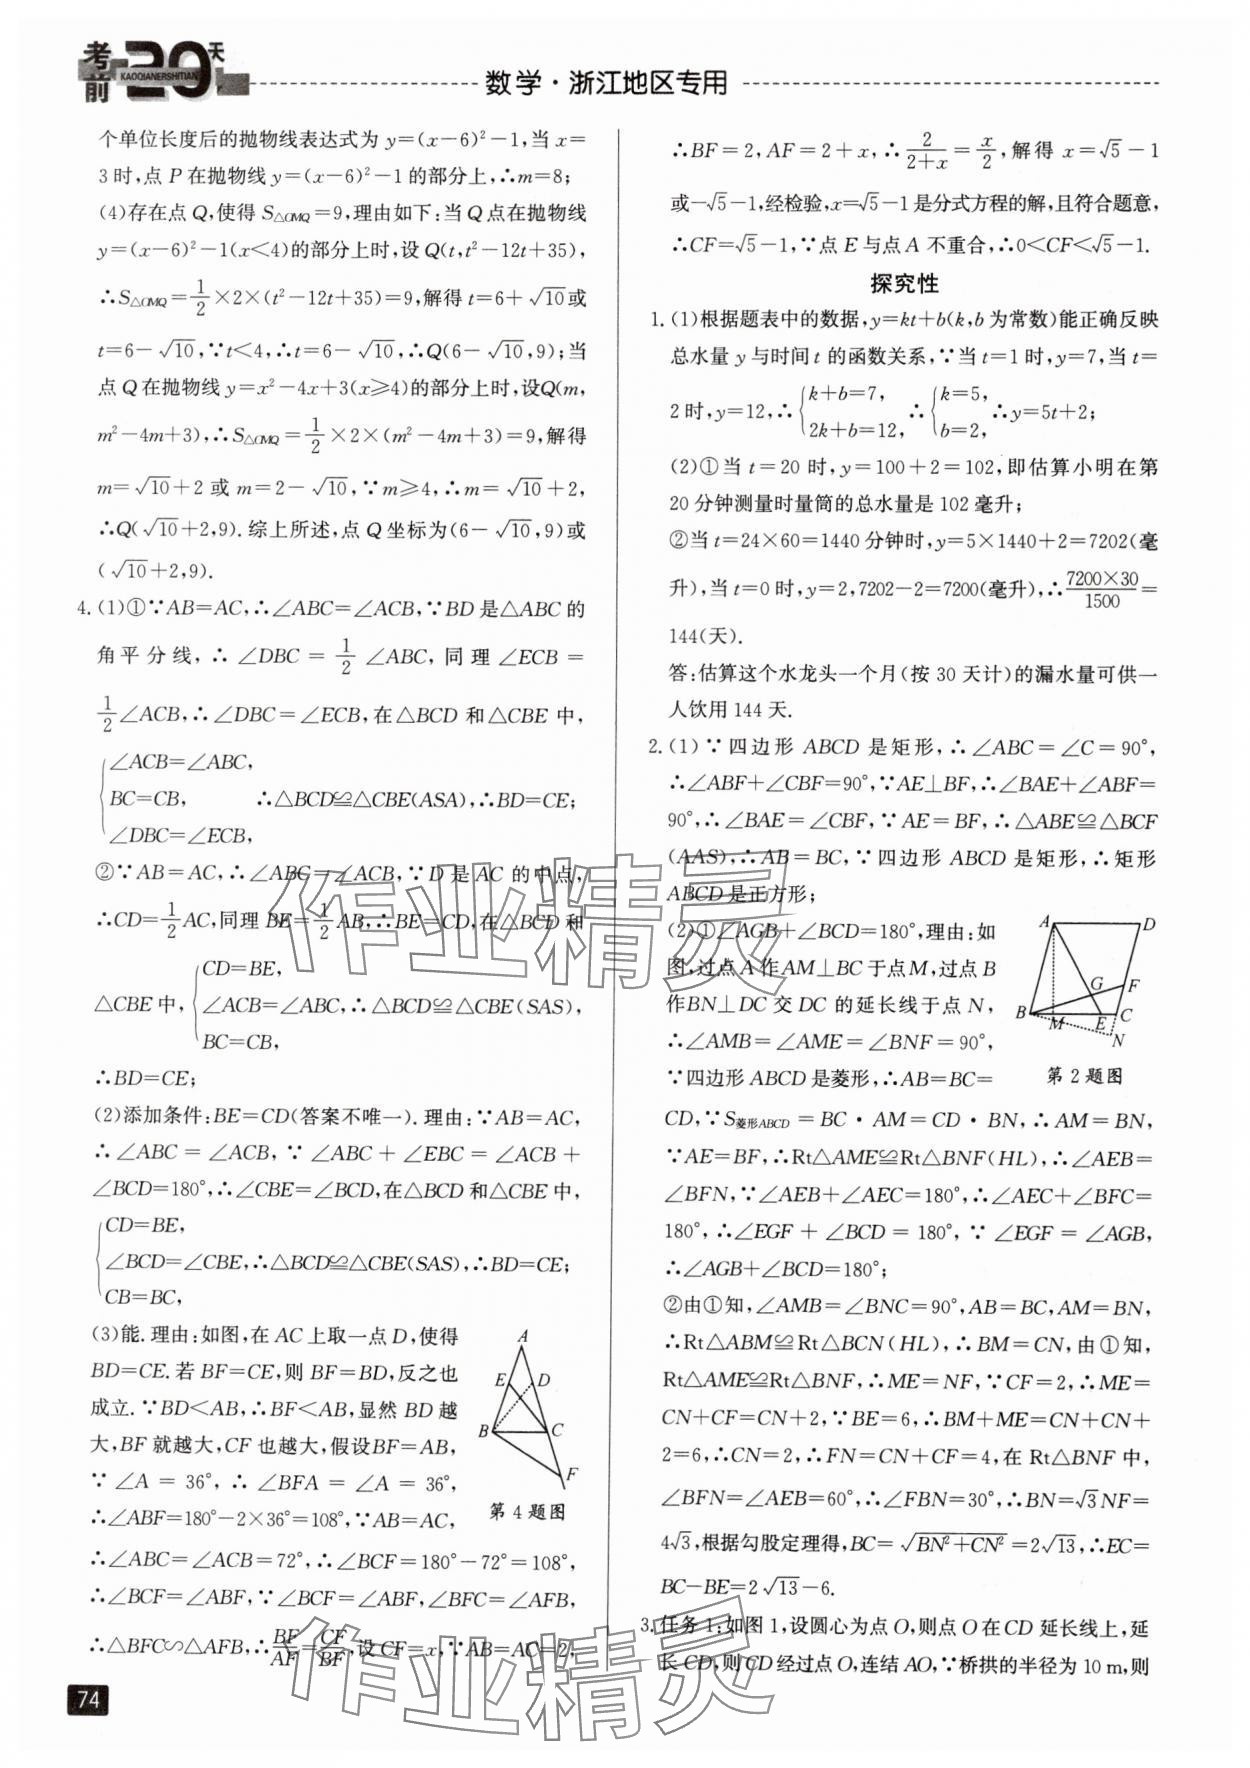 考前20天
KAOQIANERSHITIAN
数学·浙江地区专用
个单位长度后的抛物线表达式为 y=(x-6)²-1,当 x=
3时,点 P 在抛物线 y=(x-6)²-1 的部分上,∴m=8;
(4)存在点 Q,使得 S△OMQ=9,理由如下:当 Q 点在抛物线
y=(x-6)²-1(x<4)的部分上时,设 Q(t,t²-12t+35),
∴S△OMQ=1/2×2×(t²-12t+35)=9,解得 t=6+√10或
t=6-√10,∵t<4,∴t=6-√10,∴Q(6-√10,9);当
点 Q 在抛物线 y=x²-4x+3(x≥4)的部分上时,设Q(m,
m²-4m+3),∴S△OMQ=1/2×2×(m²-4m+3)=9,解得
m=√10+2 或 m=2-√10,∵m≥4,∴m=√10+2,
∴Q(√10+2,9).综上所述,点 Q 坐标为(6-√10,9)或
(√10+2,9).
4.(1)①∵AB=AC,∴∠ABC=∠ACB,∵BD 是△ABC 的
角平分线,∴∠DBC=1/2∠ABC,同理∠ECB=
1/2∠ACB,∴∠DBC=∠ECB,在△BCD 和△CBE 中,
∠ACB=∠ABC,
BC=CB, ∴△BCD≌△CBE(ASA),∴BD=CE;
∠DBC=∠ECB,
②∵AB=AC,∴∠ABC=∠ACB,∵D 是 AC 的中点,
∴CD=1/2AC,同理 BE=1/2AB,∴BE=CD,在△BCD 和
CD=BE,
△CBE 中, ∠ACB=∠ABC,∴△BCD≌△CBE(SAS),
BC=CB,
∴BD=CE;
(2)添加条件:BE=CD(答案不唯一).理由:∵AB=AC,
∴∠ABC=∠ACB,∵∠ABC+∠EBC=∠ACB+
∠BCD=180°,∴∠CBE=∠BCD,在△BCD 和△CBE 中,
CD=BE,
∠BCD=∠CBE,∴△BCD≌△CBE(SAS),∴BD=CE;
CB=BC,
(3)能.理由:如图,在 AC 上取一点 D,使得
BD=CE.若 BF=CE,则 BF=BD,反之也
成立.∵BD<AB,∴BF<AB,显然 BD 越
大,BF 就越大,CF 也越大,假设BF=AB,
∵∠A=36°,∴∠BFA=∠A=36°,
∴∠ABF=180°-2×36°=108°,∵AB=AC,
∴∠ABC=∠ACB=72°,∴∠BCF=180°-72°=108°,
∴∠BCF=∠ABF,∵∠BCF=∠ABF,∠BFC=∠AFB,
∴△BFC∽△AFB,∴BF/AF=CF/BF,设 CF=x,∵AB=AC=2,
A
E
D
B
C
F
第 4 题图
74
∴BF=2,AF=2+x,∴2/(2+x)=x/2,解得 x=√5-1
或-√5-1,经检验,x=√5-1是分式方程的解,且符合题意,
∴CF=√5-1,∵点 E 与点 A 不重合,∴0<CF<√5-1.
探究性
1.(1)根据题表中的数据,y=kt+b(k,b 为常数)能正确反映
总水量 y 与时间 t 的函数关系,∵当 t=1 时,y=7,当 t=
2时,y=12,∴{k+b=7, 2k+b=12, ∴{k=5, b=2, ∴y=5t+2;
(2)①当 t=20 时,y=100+2=102,即估算小明在第
20分钟测量时量筒的总水量是 102 毫升;
②当 t=24×60=1440 分钟时,y=5×1440+2=7202(毫
升),当 t=0 时,y=2,7202-2=7200(毫升),∴7200×30/1500=
144(天).
答:估算这个水龙头一个月(按 30 天计)的漏水量可供一
人饮用 144 天.
2.(1)∵四边形 ABCD 是矩形,∴∠ABC=∠C=90°,
∴∠ABF+∠CBF=90°,∵AE⊥BF,∴∠BAE+∠ABF=
90°,∴∠BAE=∠CBF,∵AE=BF,∴△ABE≌△BCF
(AAS),∴AB=BC,∵四边形 ABCD 是矩形,∴矩形
ABCD 是正方形;
(2)①∠AGB+∠BCD=180°,理由:如
图,过点 A 作 AM⊥BC 于点M,过点 B
作BN⊥DC 交 DC 的延长线于点 N,
∴∠AMB=∠AME=∠BNF=90°,
∵四边形 ABCD 是菱形,∴AB=BC=
A
D
G
F
B
M
E
C
N
第 2 题图
CD,∵S菱形ABCD=BC·AM=CD·BN,∴AM=BN,
∵AE=BF,∴Rt△AME≌Rt△BNF(HL),∴∠AEB=
∠BFN,∵∠AEB+∠AEC=180°,∴∠AEC+∠BFC=
180°,∴∠EGF+∠BCD=180°,∵∠EGF=∠AGB,
∴∠AGB+∠BCD=180°;
②由①知,∠AMB=∠BNC=90°,AB=BC,AM=BN,
∴Rt△ABM≌Rt△BCN(HL),∴BM=CN,由①知,
Rt△AME≌Rt△BNF,∴ME=NF,∵CF=2,∴ME=
CN+CF=CN+2,∵BE=6,∴BM+ME=CN+CN+
2=6,∴CN=2,∴FN=CN+CF=4,在 Rt△BNF 中,
∠BFN=∠AEB=60°,∴∠FBN=30°,∴BN=√3NF=
4√3,根据勾股定理得,BC=√(BN²+CN²)=2√13,∴EC=
BC-BE=2√13-6.
3.任务 1:如图 1,设圆心为点 O,则点 O 在 CD 延长线上,延
长 CD,则 CD 经过点 O,连结 AO,∵桥拱的半径为 10 m,则
作业精灵
作业精灵